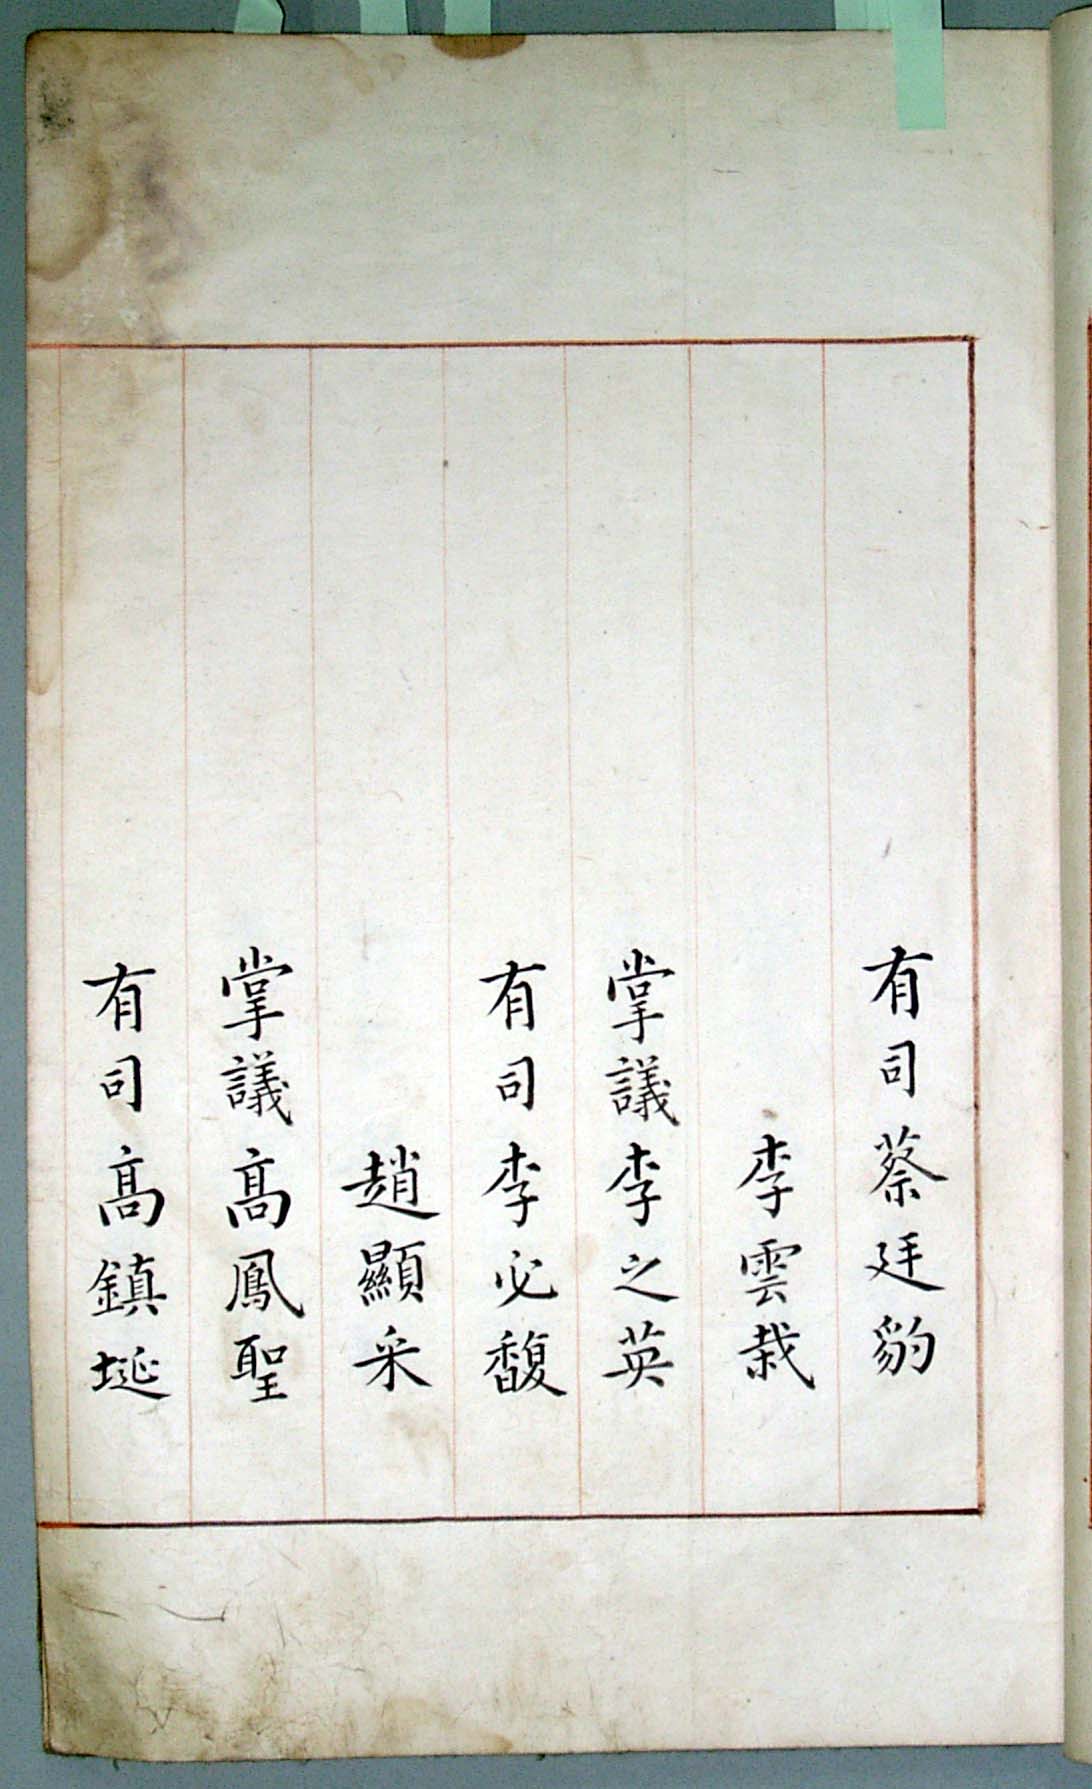 有司蔡廷豹
李雲栽
掌議李之英
有司李必馥
趙顯采
掌議高鳳聖
有司高鎮埏